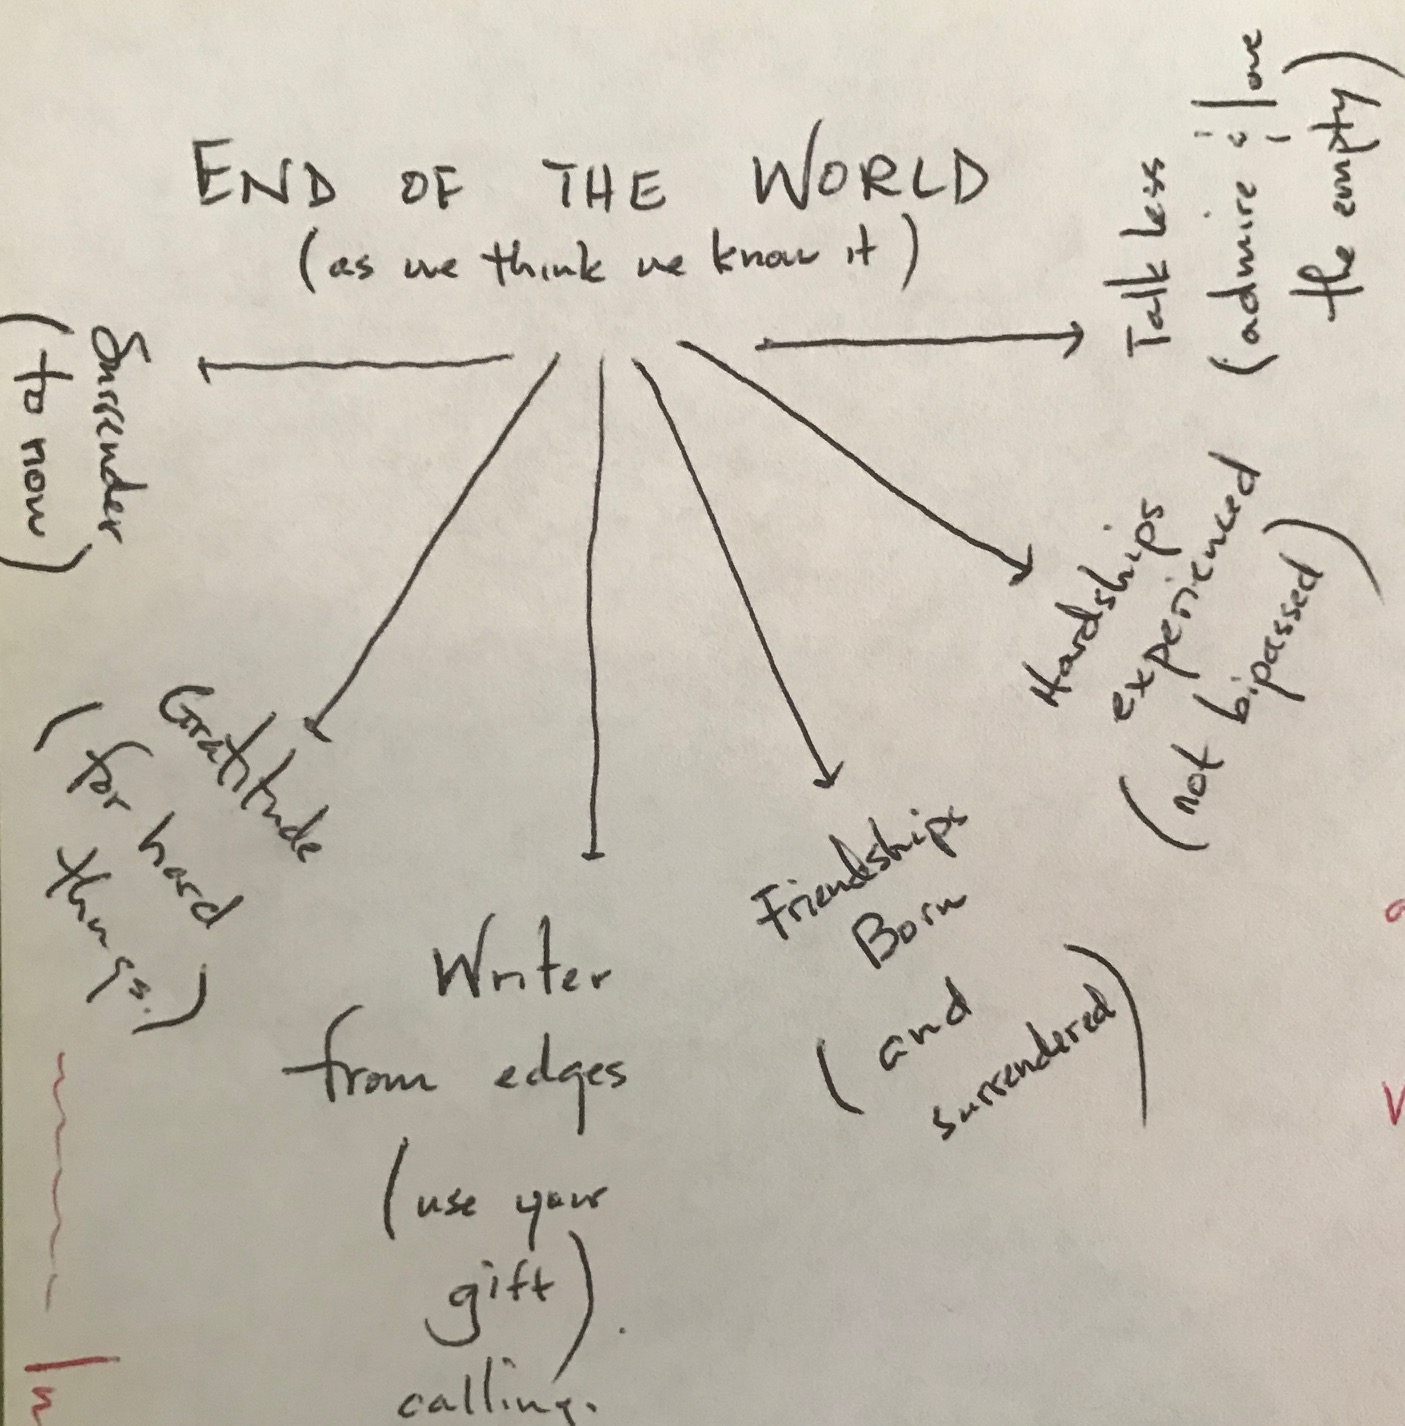 END OF THE WORLD
(as we think we know it)
Surrender
(to now)
Gratitude
(for hard
things.)
Writer
from edges
(use your
gift).
calling.
Friendships
Born
(and
surrendered)
Hardships
experienced
(not bipassed)
Talk less
(admire & love
the empty)